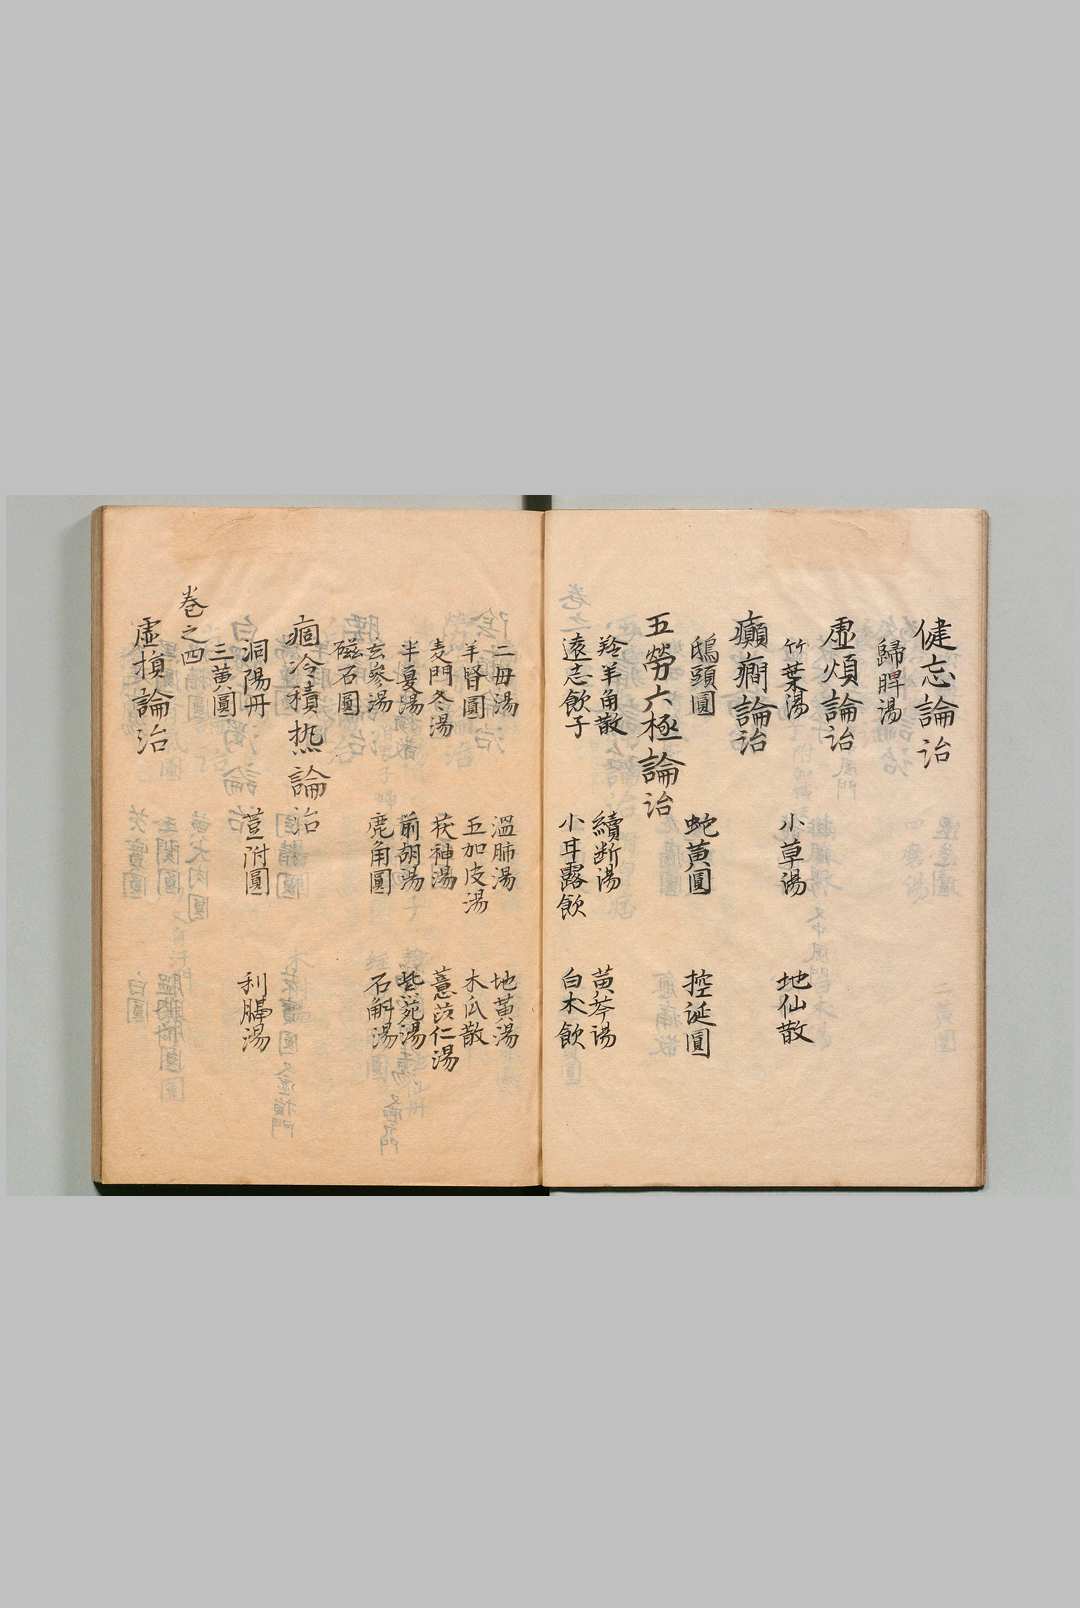 健忘論治
歸脾湯
虛煩論治
竹葉湯 小草湯 地仙散
癲癇論治
鴟頭圓 蛇黄圓 控涎圓
五勞六極論治
羚羊角散 續断湯 黄芩湯
遠志飲子 小甘露飲 白木飲
二毋湯 溫肺湯 地黄湯
羊腎圓 五加皮湯 木瓜散
麦門冬湯 茯神湯 薏苡仁湯
半夏湯 前胡湯 紫菀湯
玄參湯 鹿角圓 石斛湯
磁石圓
痼冷積热論治
洞陽丹 荳附圓 利膈湯
三黄圓
卷之四
虛損論治